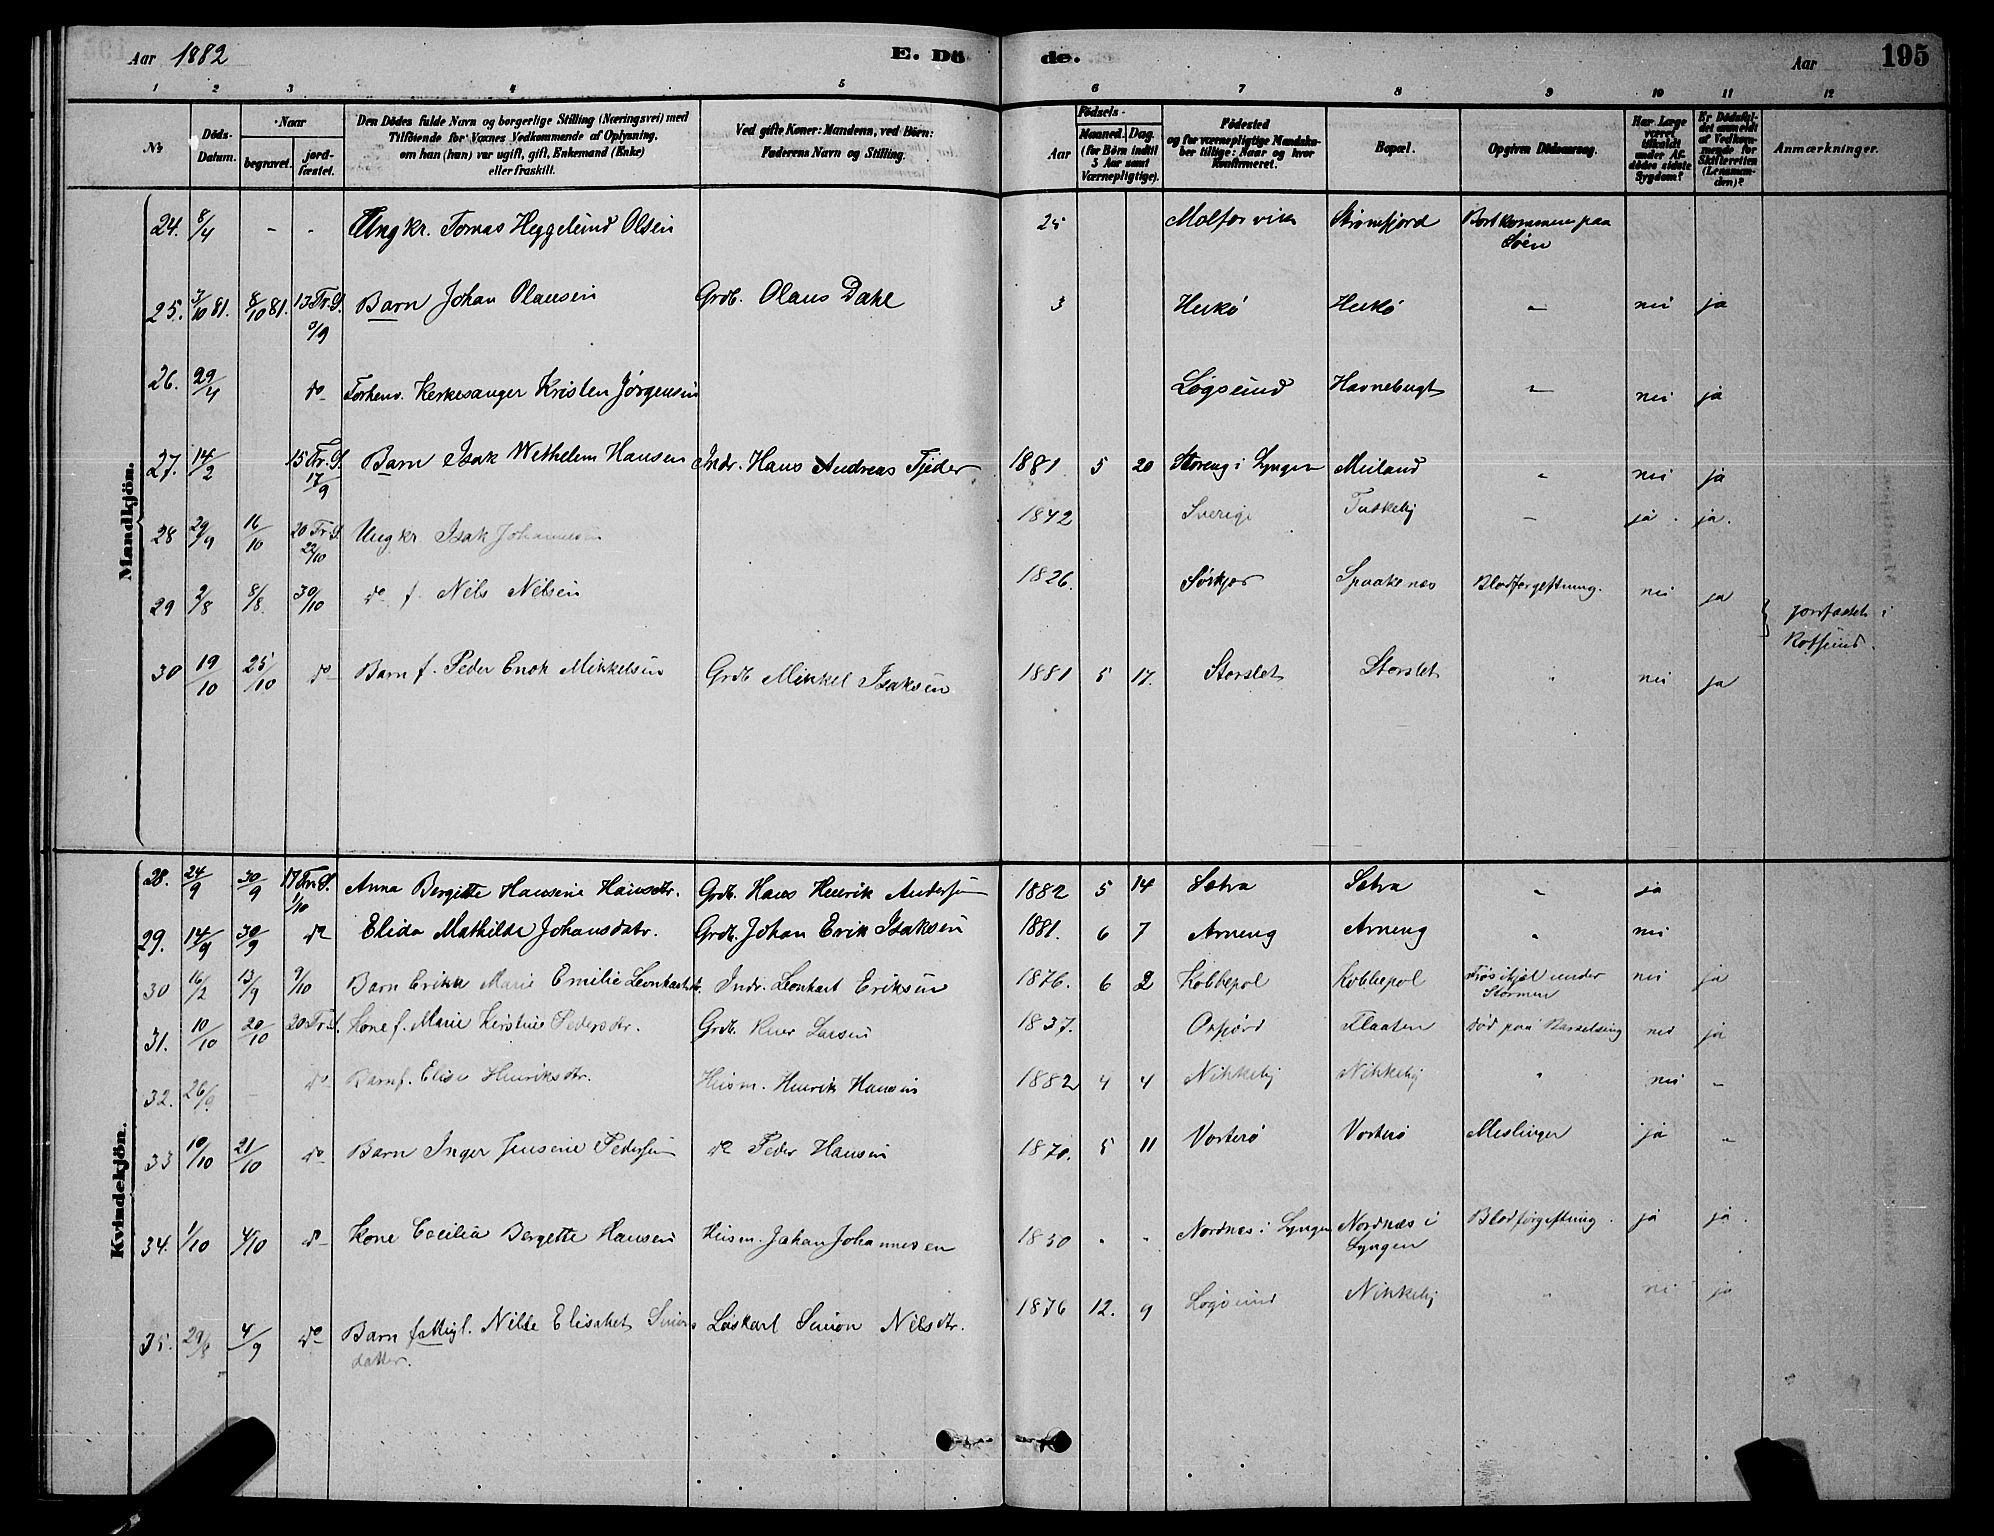 Aar 1882 E. Dö de. Aar 195
1 2 3 4 5 6 7 8 9 10 11 12
No
Döds-Datum.
Naar
begravet.
jord-fæstet.
Den Dödes fulde Navn og borgerlige Stilling (Næringsvei) med
Tilföiende for Voxnes Vedkommende af Oplysning,
om han (hun) var ugift, gift, Enkemand (Enke)
eller fraskilt.
Ved gifte Koner: Mandens, ved Börn:
Faderens Navn og Stilling.
Födsels-
Aar
Maaned. Dag.
(for Börn indtil
5 Aar samt
Værnepligtige).
Födested
og for værnepligtige Mandska-
ber tillige: Naar og hvor
Konfirmeret.
Bopæl.
Opgiven Dödsaarsag.
Har Læge
været
tilkaldt
under Af-
dödes sidste
Sygdom?
Er Dödsfal-
det anmeldt
af Vedkom-
mende for
Skifteretten
(Lensman-
den)?
Anmærkninger.
Mandkjön.
24. 8/4 - - Ungkr. Tomas Heggelund Olsen 25 Molforvik Strømfjord Bortkommen paa
Søen
25. 3/10 81. 8/10 81. 13 Tr. S. 3/9 Barn Johan Olausen Grdb. Olaus Dahl 3 Hukø Hukø " nei ja
26. 29/4 do Forhenv. Kirkesanger Kristen Jørgensen Løgsund Havnebugt " nei ja
27. 14/2 15 Tr. S. 17/9 Barn Isak Wethelem Hansen Indr. Hans Andreas Tjeder 1881 5 20 Storeng i Lyngen Meiland " nei ja
28 29/9 16/10 20 Tr. S. 22/10 Ungkr Isak Johannesen 1842 Sverige Taskeby " ja. ja.
29 2/8 8/8. 30/10 do f. Nils Nilsen 1826. Sørkjos Spaakenæs Blodforgiftning. nei ja jordfæstet i
Rotsund.
30 19/10 25/10 do Barn f. Peder Enok Mikkelsen Grdb Mikkel Isaksen 1881 5 17. Storslet Storslet " nei ja
Kvindekjön.
28. 24/9 30/9 17 Tr. S. 1/10 Anna Bergitte Hansine Hansdtr. Grdb. Hans Henrik Andersen 1882 5 14 Sætra Sætra " ja
29. 14/9 30/9 do Elida Mathilde Johansdatr. Grdb. Johan Erik Isaksen 1881. 6 7 Arneng Arneng " nei
30 16/2 13/9 9/10 Barn Erikk Marie Emilie Leonhartdtr. Indr. Leonhart Eriksen 1876. 6 2 Kobbepol Kobbepol Frøs ihjel under
Stormen nei ja
31. 10/10 20/10 20 Tr. S. Kone f. Marie Kirstine Pedersdtr. Grdb. Larsen 1837. Oxfjord Flaaten død paa Barselseng nei ja
32. 26/9. - do Barn f. Elise Henriksdtr. Husm. Henrik Hansen 1882 4 4 Nikkeby Nikkeby " nei "
33 10/10 21/10 do Barn Inger Jensine Pedersen do Peder Hansen 1870. 5 11 Vorterø Vorterø Meslinger ja "
34. 1/10 4/10 do Kone Cecilia Bergette Hansen Husm. Johan Johannesen 1830 " " Nordnæs i Lyngen Nordnæs i
Lyngen Blodforgiftning. ja ja.
35. 29/8 4/9 do Barn fattigl. Nille Elisabet Simons
datter. Løskarl Simon Nilsdtr. 1876 12. 9 Løgsund Nikkeby " nei ja